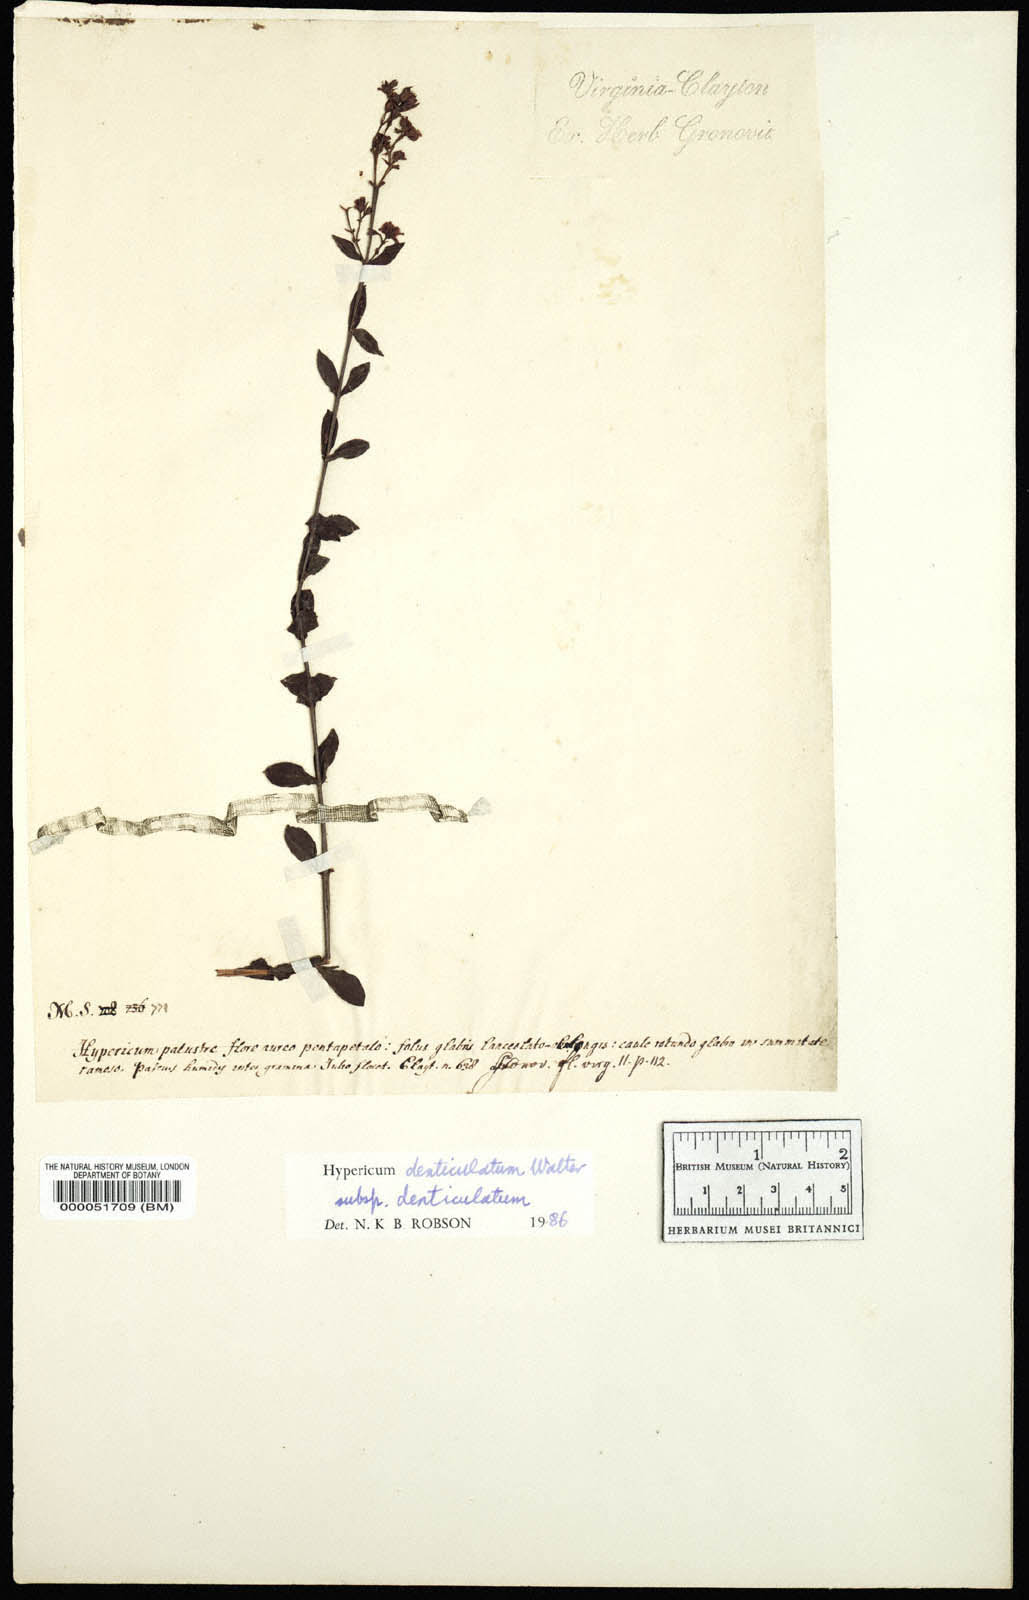 Virginia-Clayton
Ex. Herb. Gronovii
M. S. 236 771
Hypericum palustre flore aureo pentapetalo: foliis glabris lanceolato-oblongis: caule rotundo glabro in summitate
ramoso. Pascuis humidis inter gramina. Julio floret. Clayt. n. 638 Gronov. fl. virg. II. p. 112.
THE NATURAL HISTORY MUSEUM, LONDON
DEPARTMENT OF BOTANY
000051709 (BM)
Hypericum denticulatum Walter
subsp. denticulatum
Det. N. K B ROBSON 1986
1 2
BRITISH MUSEUM (NATURAL HISTORY)
1 2 3 4 5
HERBARIUM MUSEI BRITANNICI